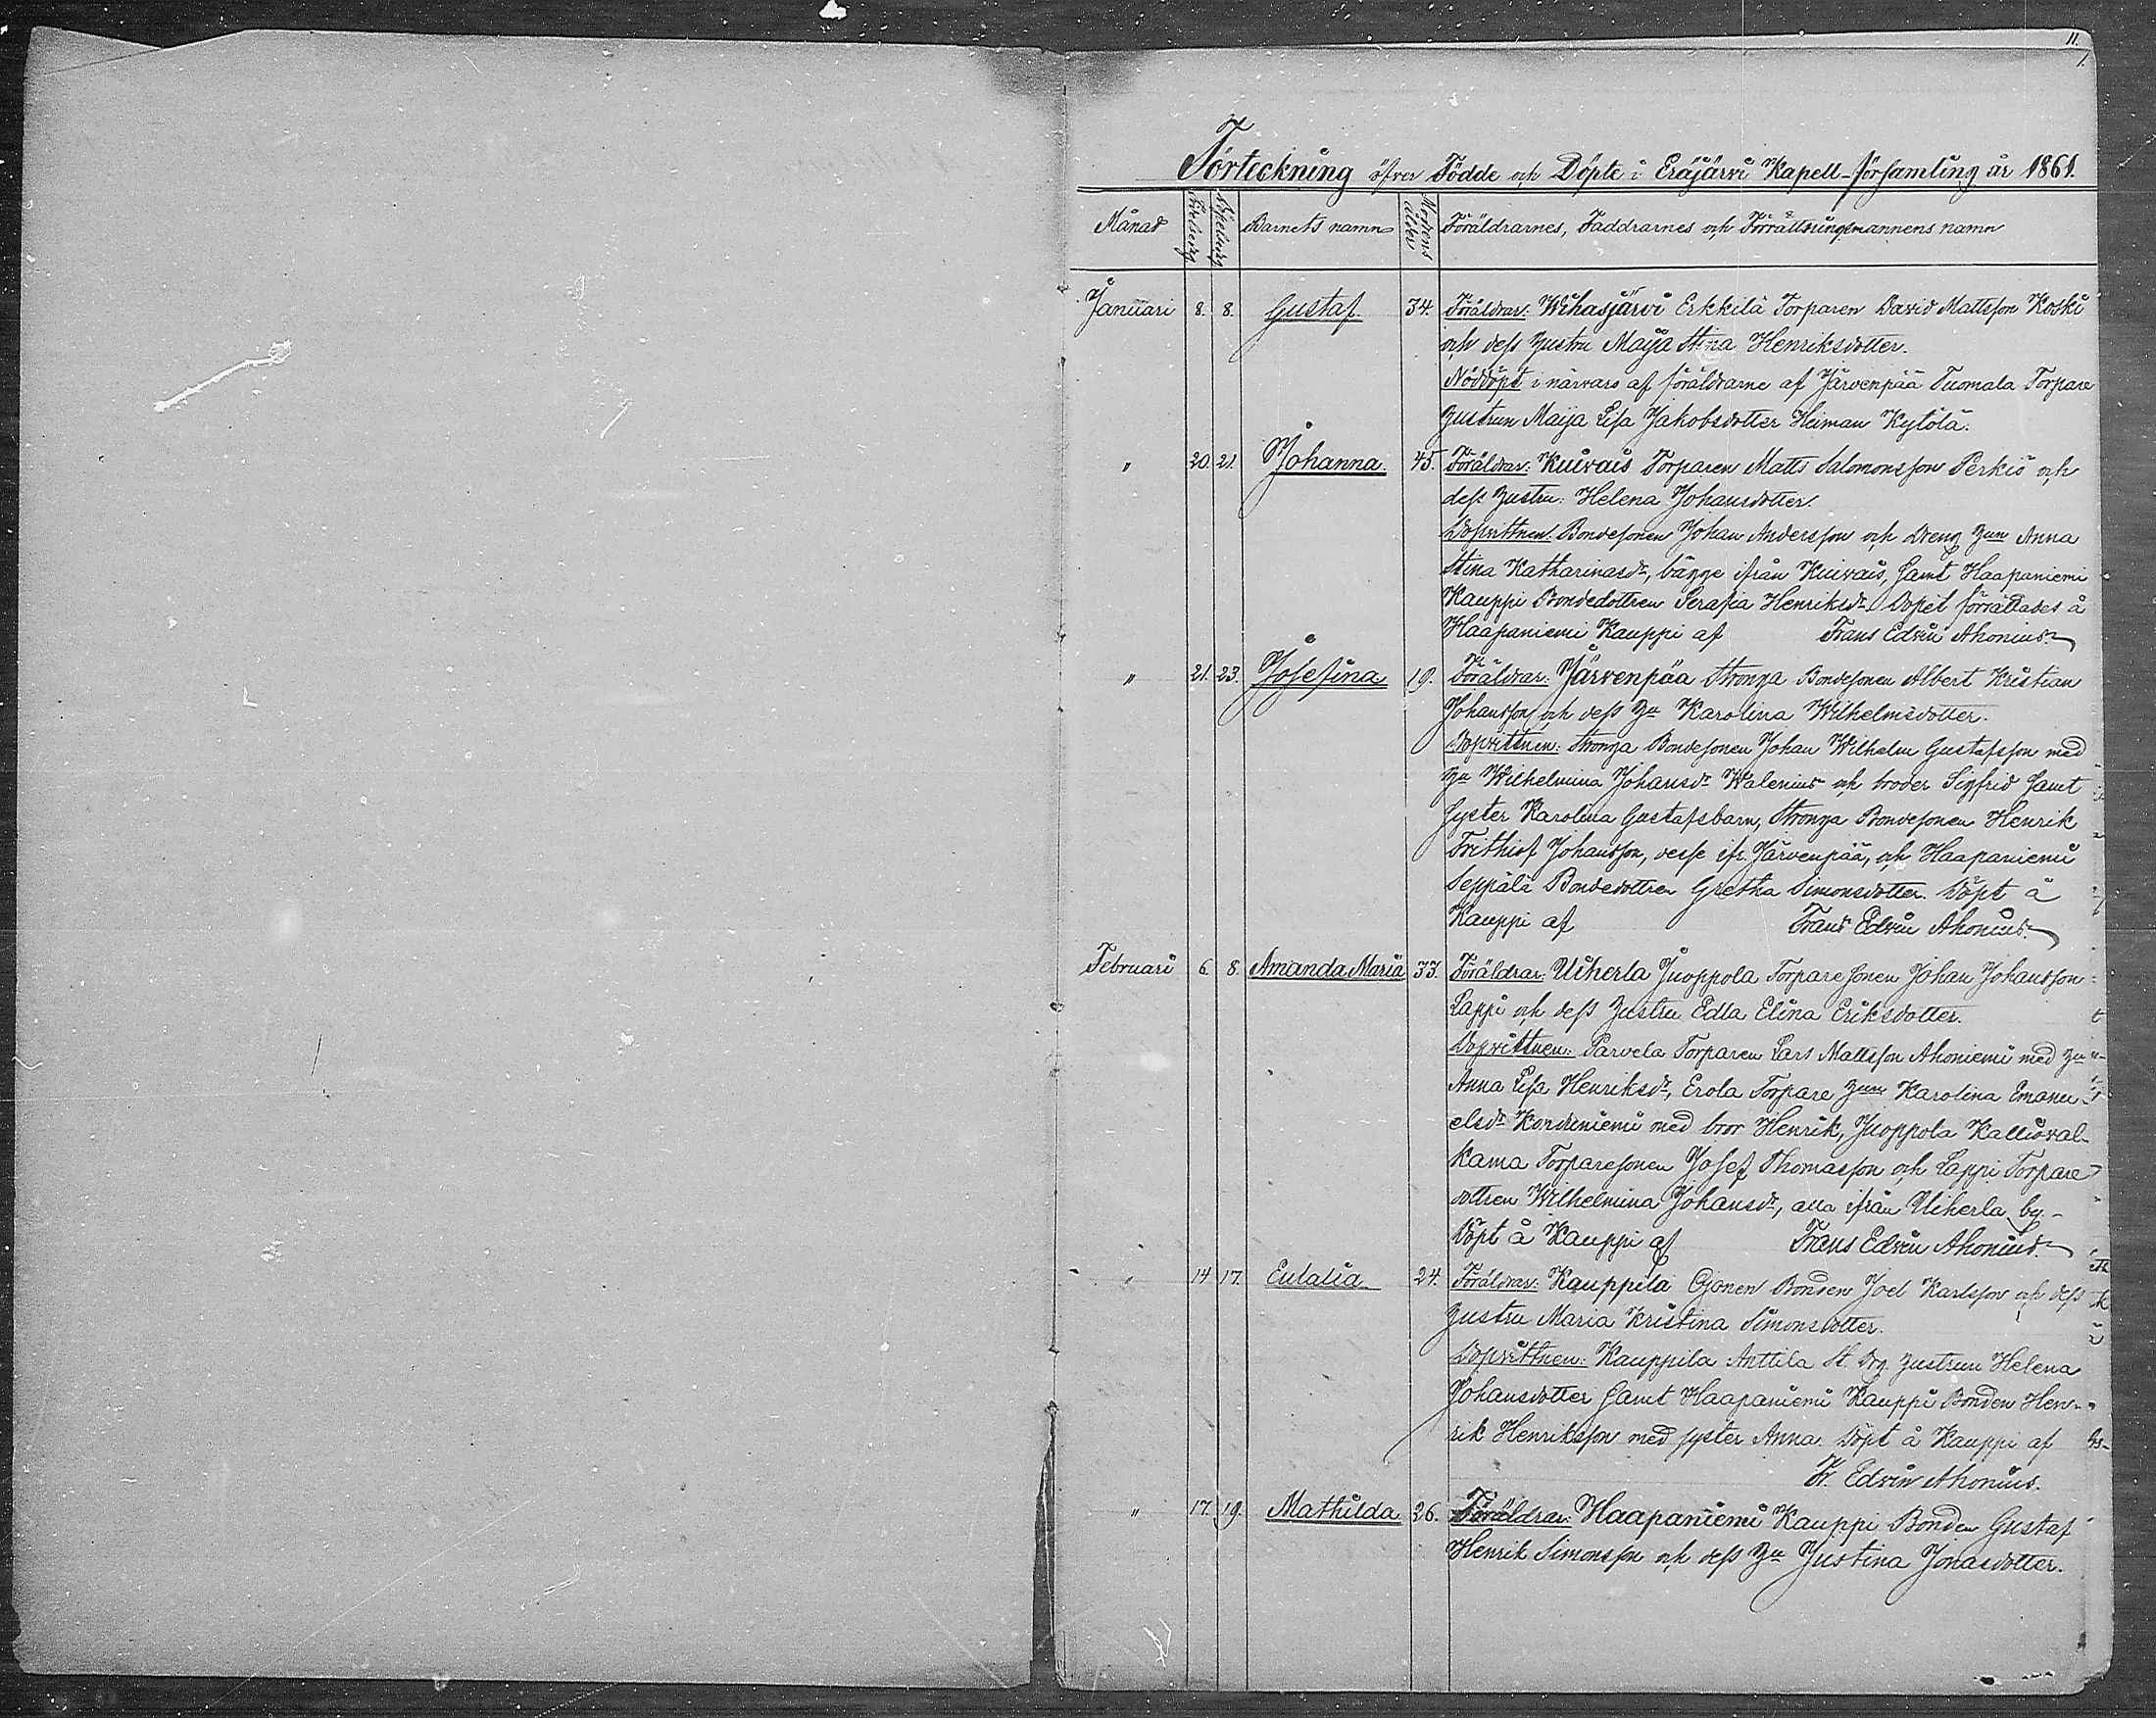 11.
1.
Förteckning öfver Födde och Döpte i Eräjärvi Kapell-församling år 1861.
Månad Födelsedg Döpelsedg Barnets namn Modrens ålder Föräldrarnes, Faddrarnes och Förrättningsmannens namn
Januari 8. 8. Gustaf. 34. Föräldrar: Wihasjärvi Erkkilä Torparen David Mattsson Koski
och dess hustru Maija Stina Henriksdotter.
Nöddöpt i närvaro af föräldrarne af Järvenpää Tuomala Torpare
hustrun Maija Lisa Jakobsdotter Heiman Kytölä.
" 20. 21. Johanna 45. Föräldrar: Kuivais Torparen Matts Salomonsson Perkiö och
dess hustru: Helena Johansdotter.
Dopvittnen: Bondesonen Johan Andersson och Dreng hun Anna
Stina Katharinasdr, bägge ifrån Kuivais, samt Haapaniemi
Kauppi Bondedottren Serafia Henriksdr. Dopet förrättades å
Haapaniemi Kauppi af Frans Edvin Ahonius.
" 21. 23. Josefina 19. Föräldrar: Järvenpää Stronga Bondesonen Albert Kristian
Johansson och dess hu Karolina Wilhelmsdotter.
Dopvittnen: Stronga Bondesonen Johan Wilhelm Gustafsson med
hu Wilhelmina Johansdr Walenius och broder Sigfrid samt
syster Karolina Gustafsbarn, Stronga Bondesonen Henrik
Frithiof Johansson, desse ifr. Järvenpää, och Haapaniemi
Seppälä Bondedottren Gretha Simonsdotter. Döpt å
Kauppi af Frans Edvin Ahonius.
Februari 6. 8. Amanda Maria 33. Föräldrar: Uiherla Juoppola Torparesonen Johan Johansson
Lappi och dess hustru Edla Elina Eriksdotter.
Dopvittnen: Parvela Torparen Lars Mattsson Ahoniemi med hu
Anna Lisa Henriksdr, Erola Torpare hun Karolina Emanu-
elsdr Korduniemi med bror Henrik, Juoppola Kallioval-
kama Torparesonen Josef Thomasson och Lappi Torpare
dottren Wilhelmina Johansdr, alla ifrån Uiherla by.-
Döpt å Kauppi af Frans Edvin Ahonius.
" 14 17. Eulalia 24. Föräldrar: Kauppila Ojonen Bonden Joel Karlsson och dess
hustru Maria Kristina Simonsdotter.
Dopvittnen: Kauppila Anttila St. Drg. hustrun Helena
Johansdotter samt Haapaniemi Kauppi Bonden Hen-
rik Henriksson med syster Anna. Döpt å Kauppi af
Fr. Edvin Ahonius.
" 17. 19. Mathilda 26. Föräldrar: Haapaniemi Kauppi Bonden Gustaf
Henrik Simonsson och dess hu Justina Jonasdotter.